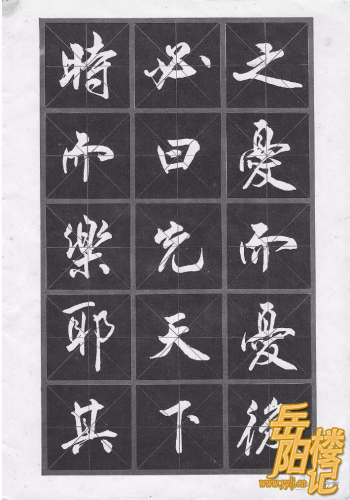 時而樂耶其
必曰先天下
之憂而憂後
岳阳楼记